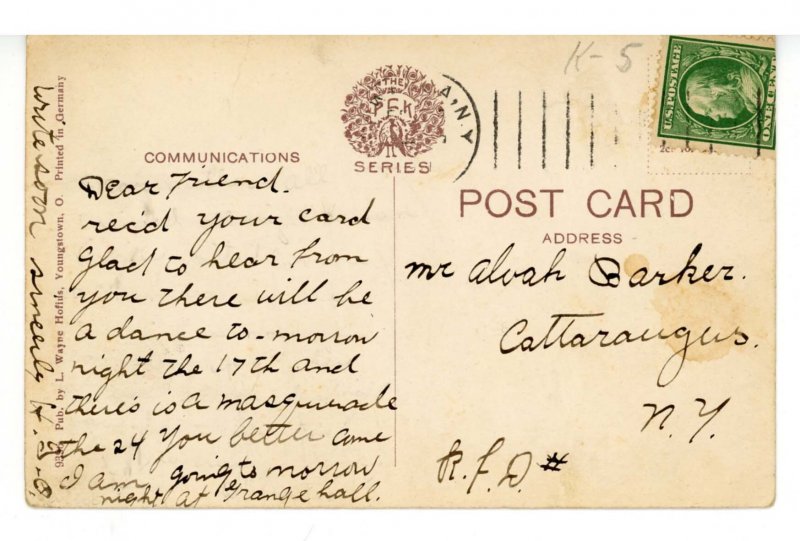 K-5
U.S. POSTAGE
THE
P.F.K
SERIES
A, N.Y.
COMMUNICATIONS
POST CARD
ADDRESS
Dear Friend.
rec'd your card
glad to hear from
you there will be
a dance to-morrow
night the 17th and
there's is a masquerade
the 24 you better come
I am going to morrow
night at Grange hall.
write soon sincerely
Pub. by L. Wayne Hofius, Youngstown, O. Printed in Germany
mr Alvah Barker.
Cattaraugus.
N.Y.
R.F.D #